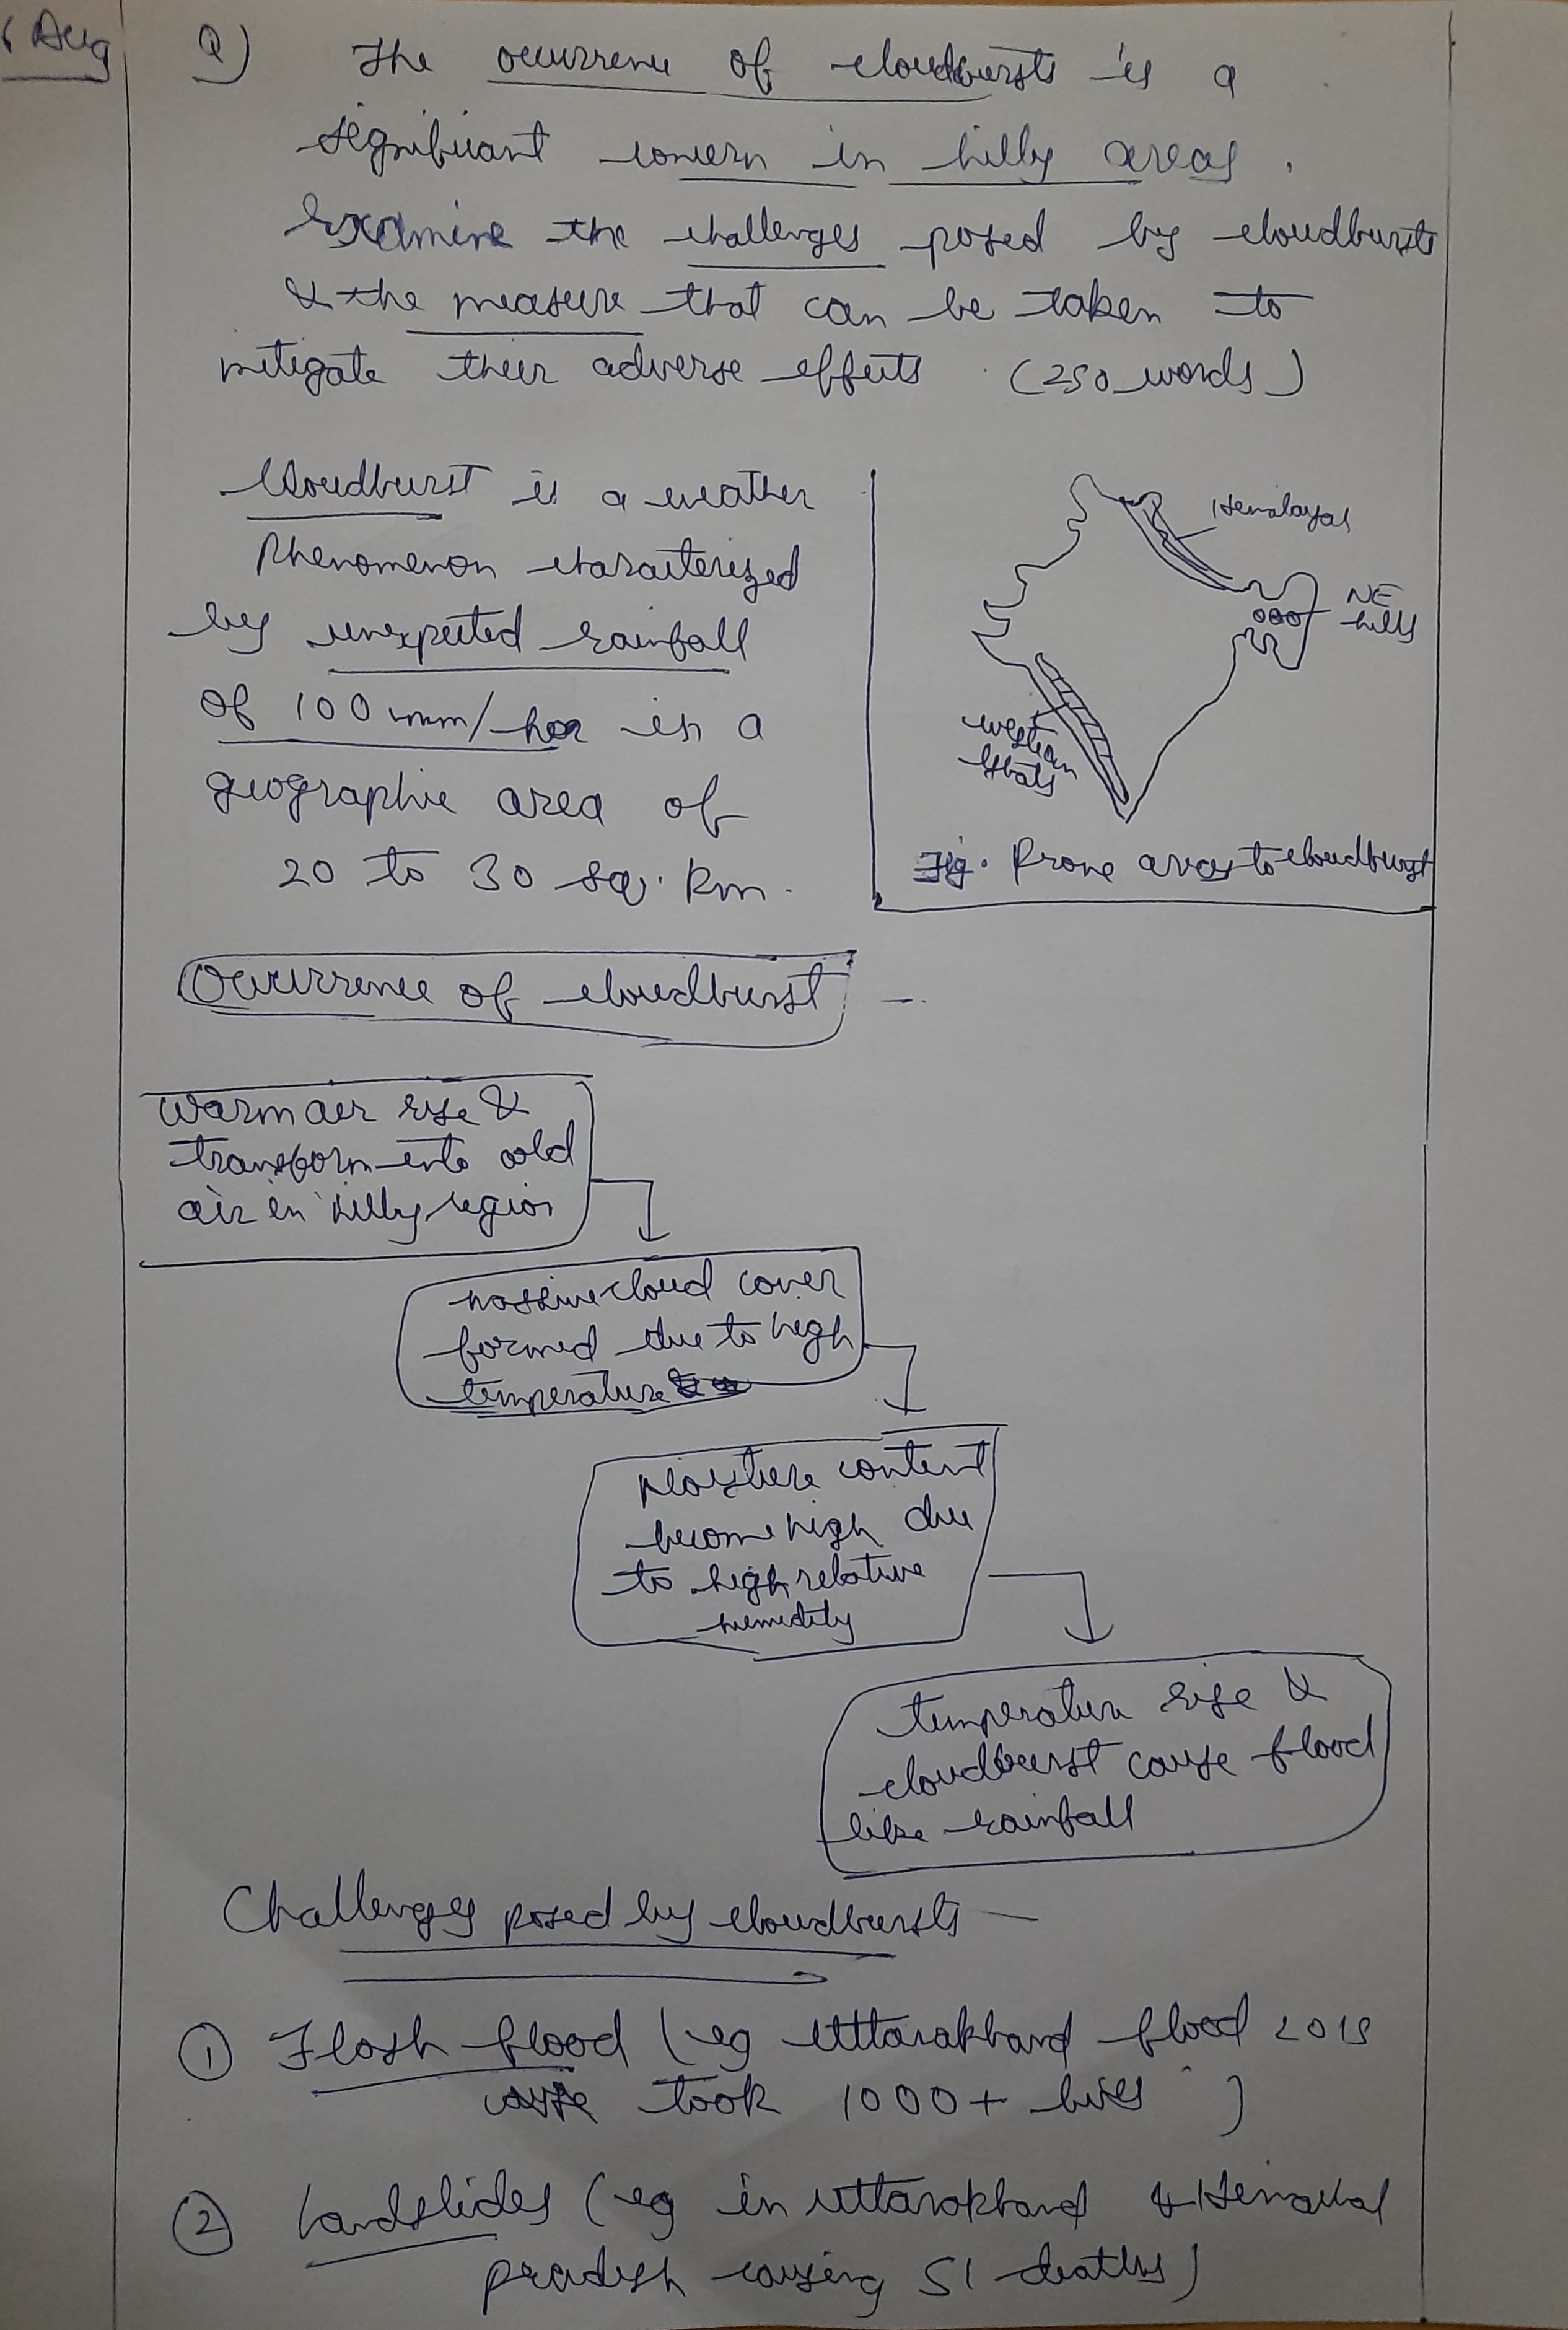 6 Aug
Q) The occurrence of cloudbursts is a
significant concern in hilly areas.
Examine the challenges posed by cloudbursts
& the measure that can be taken to
mitigate their adverse effects. (250 words)
Cloudburst is a weather
Phenomenon characterized
by unexpected rainfall
of 100 mm/hr in a
geographic area of
20 to 30 sq. km.
Himalayas
NE
hills
western
Ghats
Fig. Prone areas to cloudburst
Occurrence of cloudburst -
Warm air rise &
transform into cold
air in hilly region
massive cloud cover
formed due to high
temperature
Moisture content
become high due
to high relative
humidity
temperature rise &
cloudburst cause flood
like rainfall
Challenges posed by cloudbursts -
1 Flash flood (eg Uttarakhand flood
took 1000+ lives )
2 Landslides (eg in uttarakhand & Himachal
pradesh causing 51 deaths)